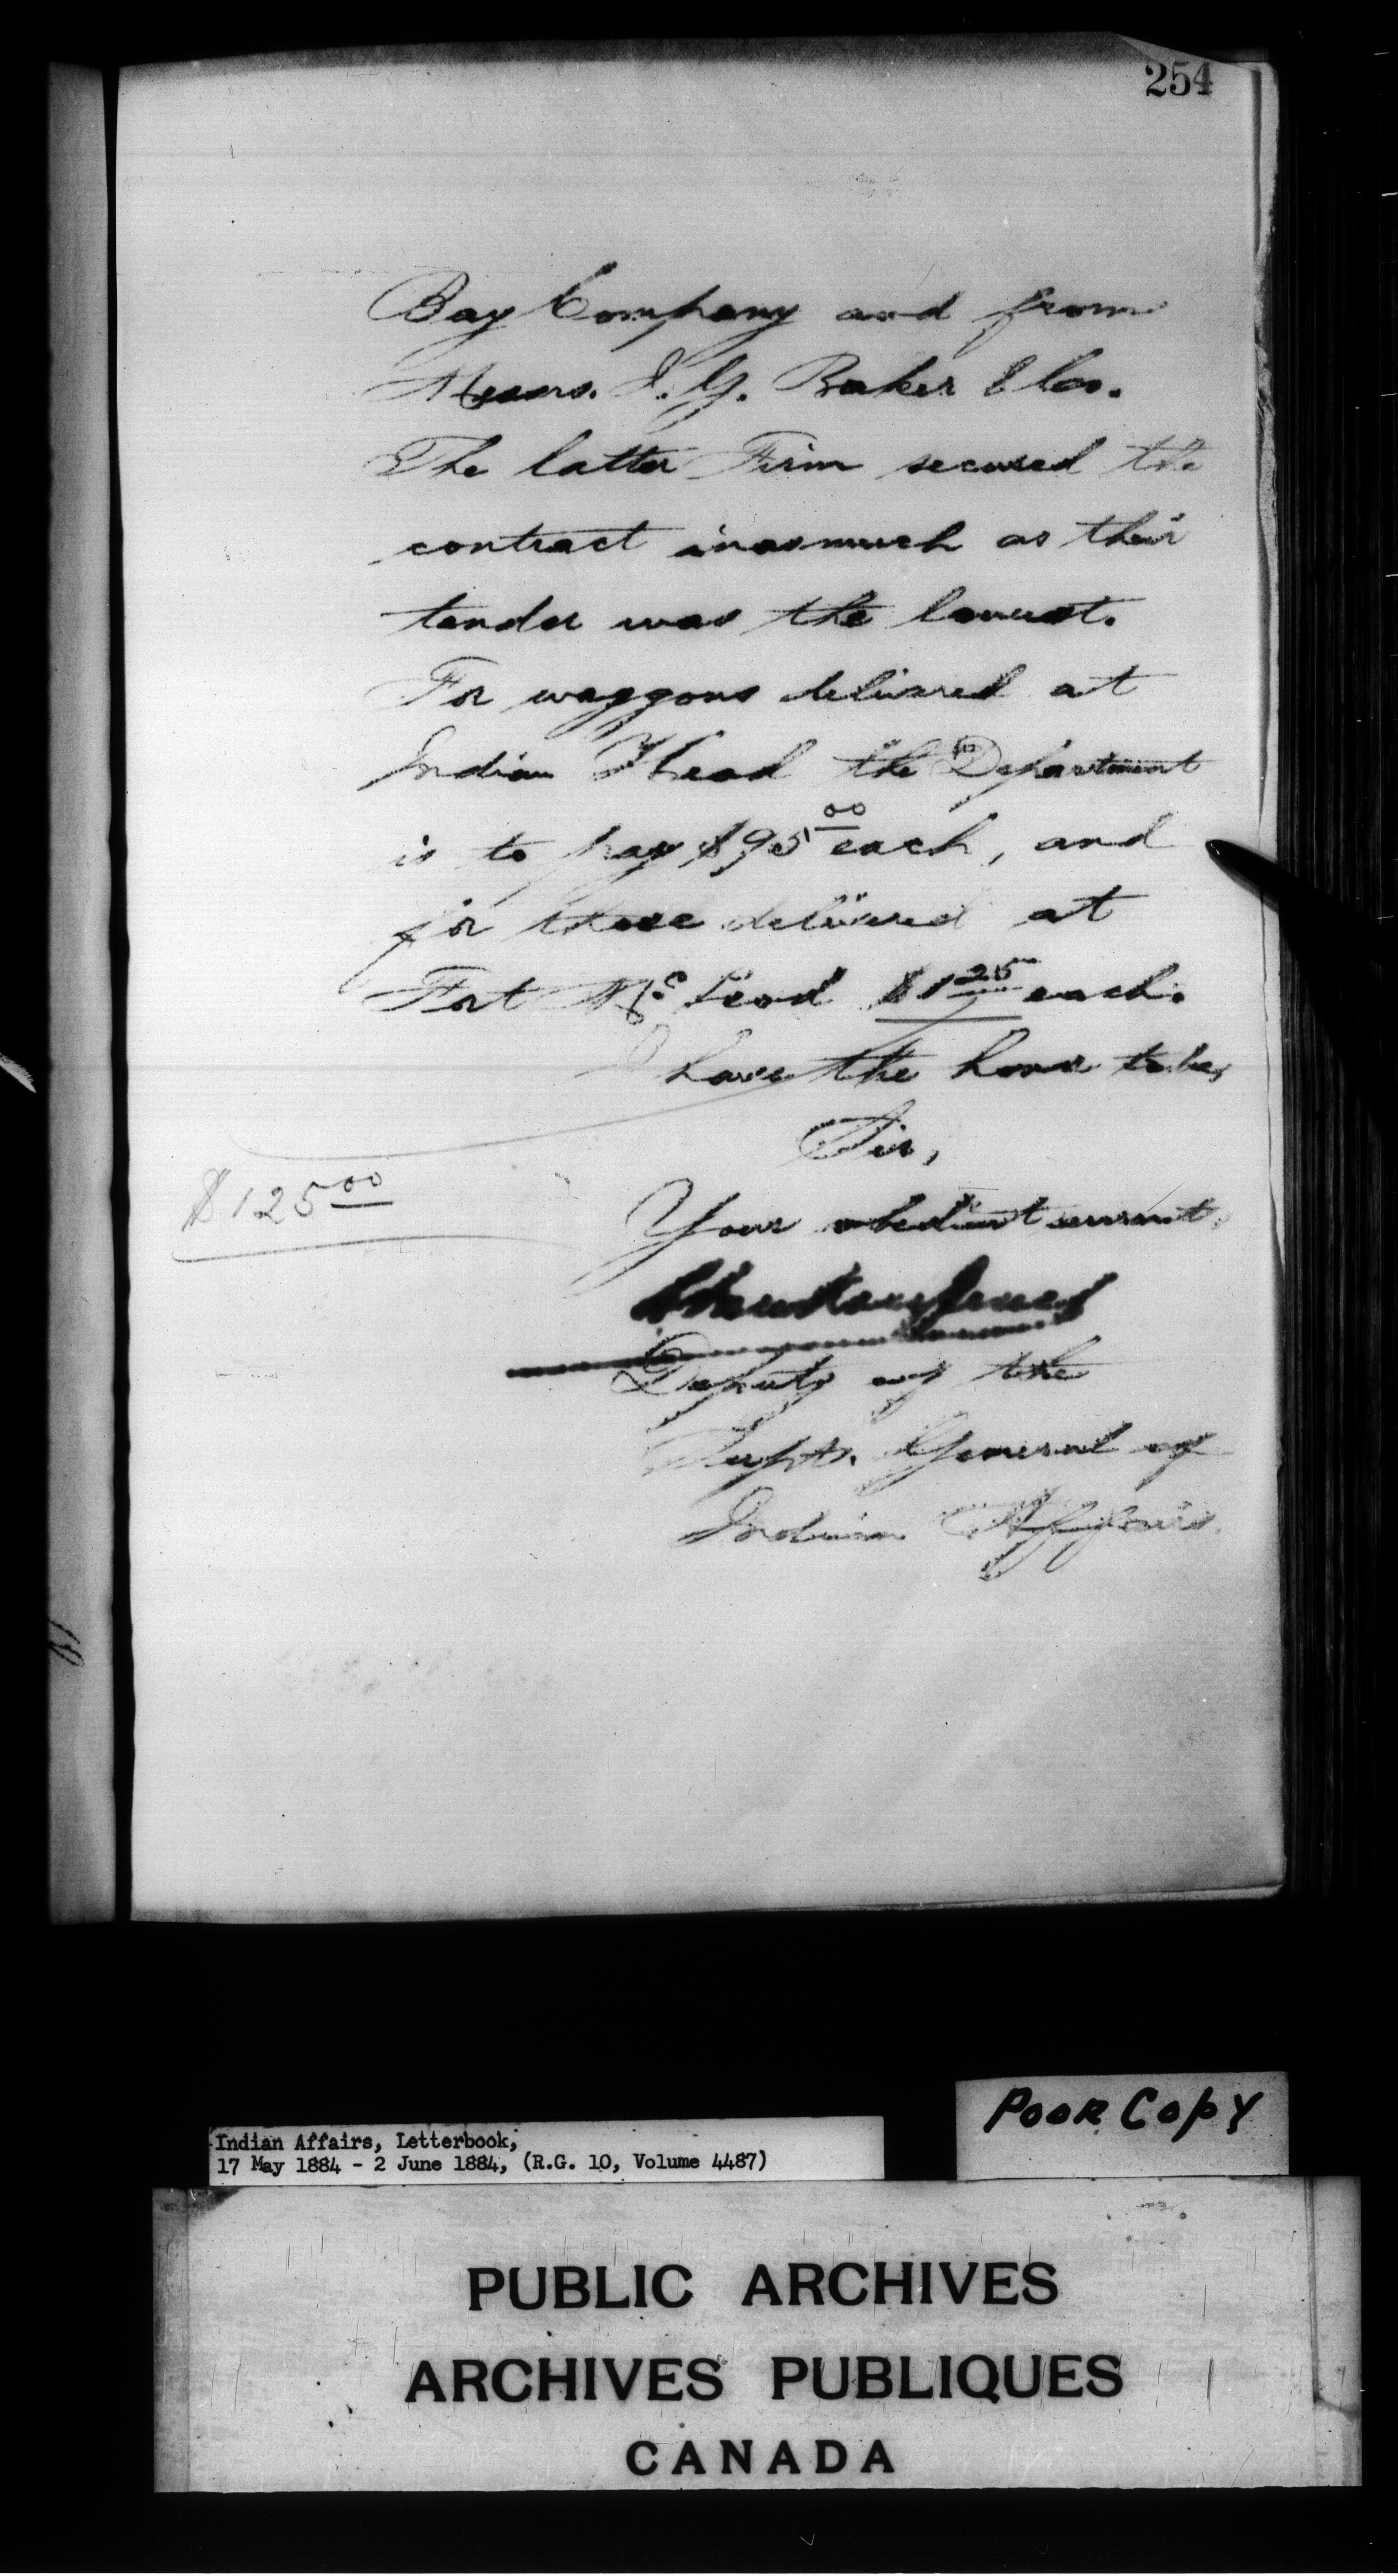 254
Bay Company and from
Messrs. I. G. Baker & Co.
The latter Firm secured the
contract inasmuch as their
tender was the lowest.
For waggons delivered at
Indian Head the Department
is to pay $95 00 each, and
for those delivered at
Fort Mc Leod $125 each.
I have the honor to be,
Sir,
$125 00
Your obedient servant,
Deputy of the
Supt. General of
Indian Affairs.
Poor Copy
Indian Affairs, Letterbook,
17 May 1884 - 2 June 1884, (R.G. 10, Volume 4487)
PUBLIC ARCHIVES
ARCHIVES PUBLIQUES
CANADA